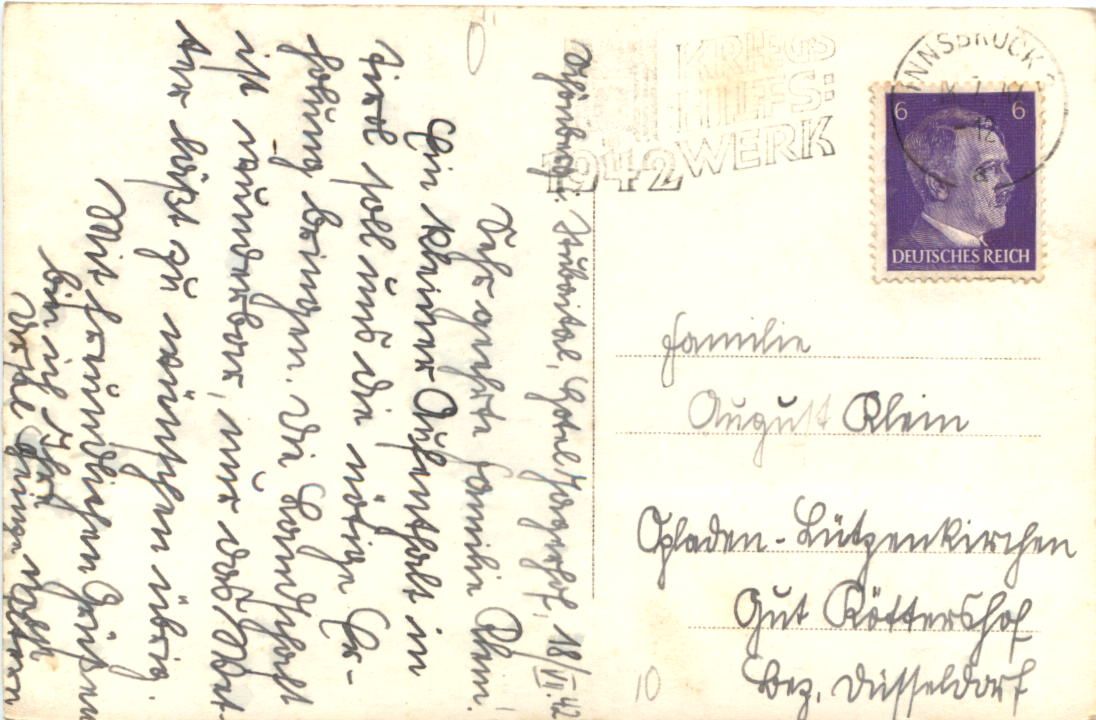 Schönberg i. Stubaital, Hotel Jägerhof, 18/VI.42
Sehr geehrte Familie Klein!
Ein kleiner Aufenthalt in
Tirol soll uns die nötige Er-
holung bringen. Die Landschaft
ist wunderbar, nur das Wet-
ter läßt zu wünschen übrig.
Mit freundlichen Grüßen
bin ich Ihre
KRIEGS
HILFS:
1942 WERK
INNSBRUCK
- 12
6 6
DEUTSCHES REICH
Familie
August Klein
Opladen-Lützenkirchen
Gut Röttershof
Bez. Düsseldorf
10